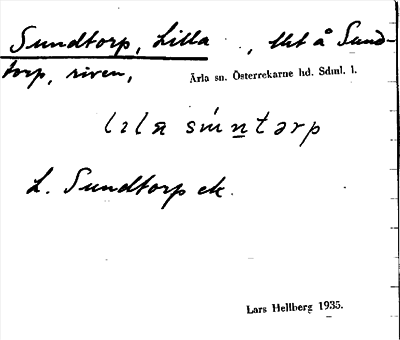 Sundtorp, Lilla , tkt å Sund-
torp, riven,
Ärla sn. Österrekarne hd. Sdml. l.
L. Sundtorp ek.
Lars Hellberg 1935.